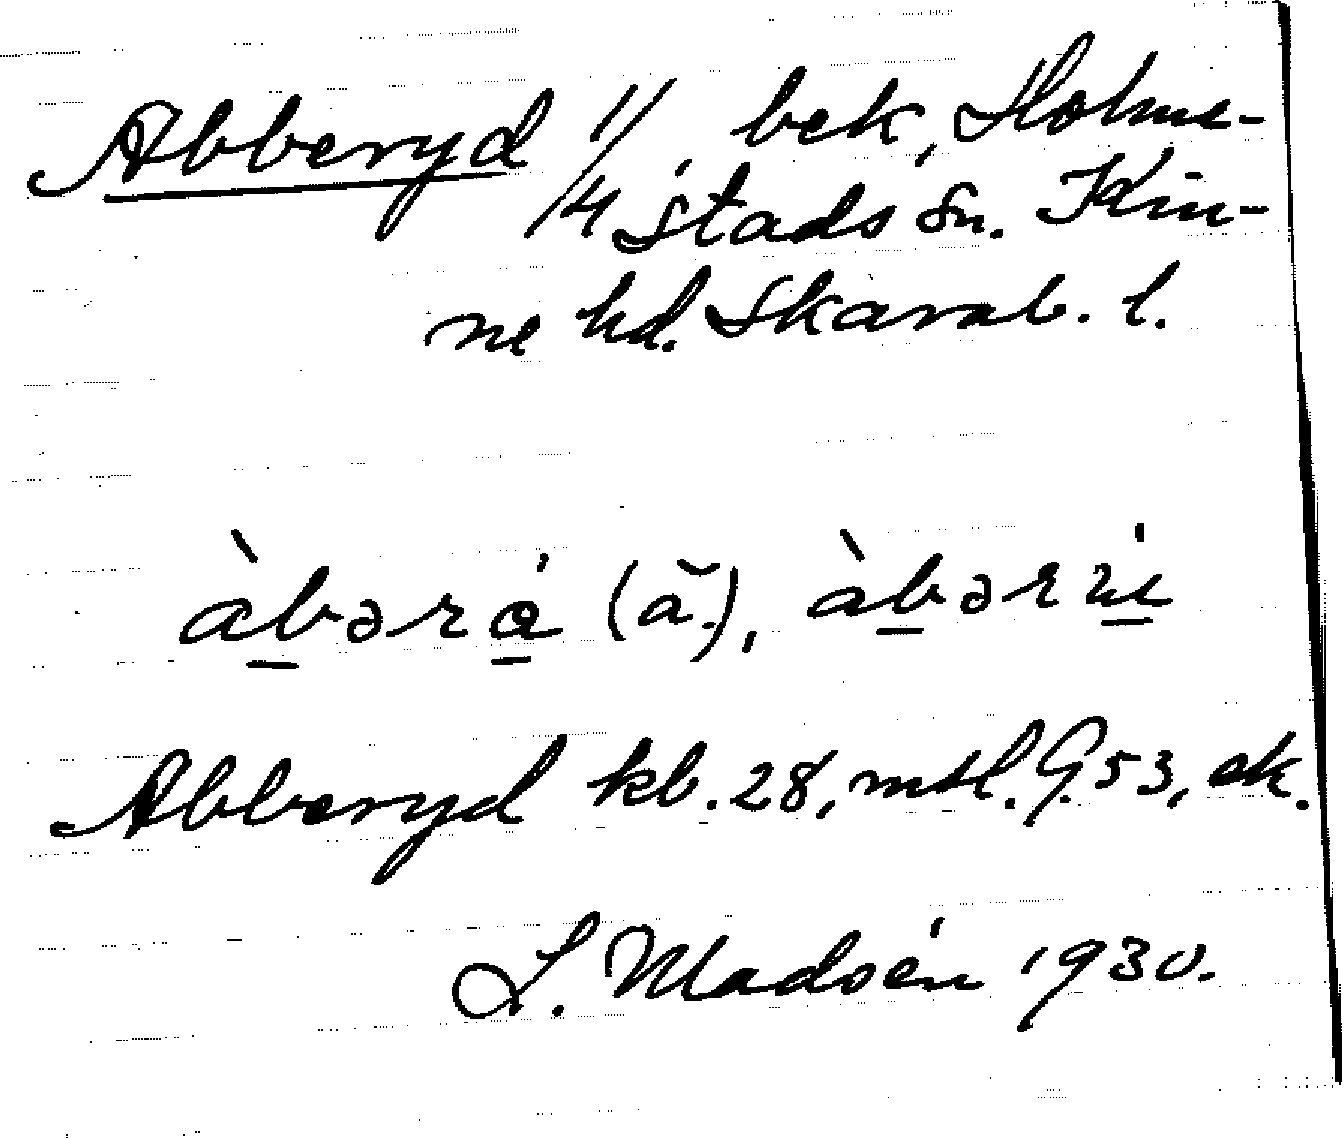 Abberyd 1/4, bek, Holme-
stads sn. Kin-
ne hd. Skarab. l.
àbərá (ă.), àbərúí
Abberyd kb. 28, mtl. G. 53, ek.
L. Madsén 1930.